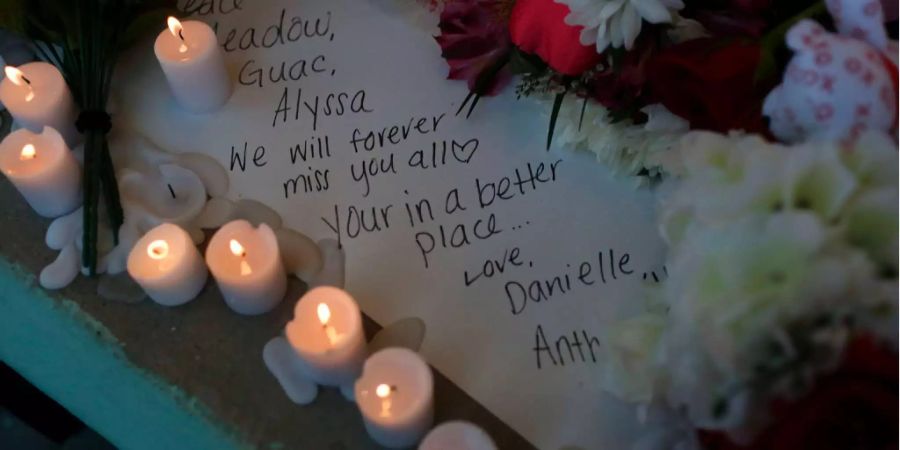 Meadow,
Guac,
Alyssa
We will forever
miss you all♡
Your in a better
place...
Love,
Danielle,